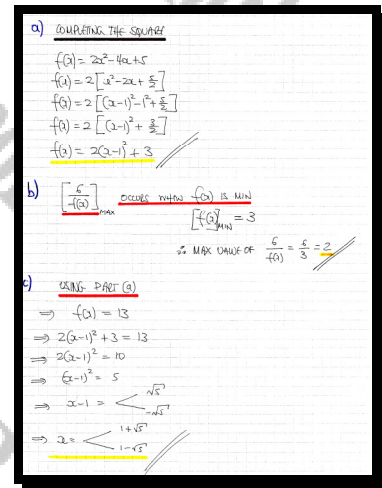 a) COMPLETING THE SQUARE
f(x) = 2x² - 4x + 5
f(x) = 2[x² - 2x + 5/2]
f(x) = 2[(x-1)² - 1² + 5/2]
f(x) = 2[(x-1)² + 3/2]
f(x) = 2(x-1)² + 3
b) [6/f(x)]MAX OCCURS WHEN f(x) IS MIN
[f(x)]MIN = 3
∴ MAX VALUE OF 6/f(x) = 6/3 = 2
c) USING PART (a)
⇒ f(x) = 13
⇒ 2(x-1)² + 3 = 13
⇒ 2(x-1)² = 10
⇒ (x-1)² = 5
⇒ x-1 = < √5
-√5
⇒ x = < 1+√5
1-√5